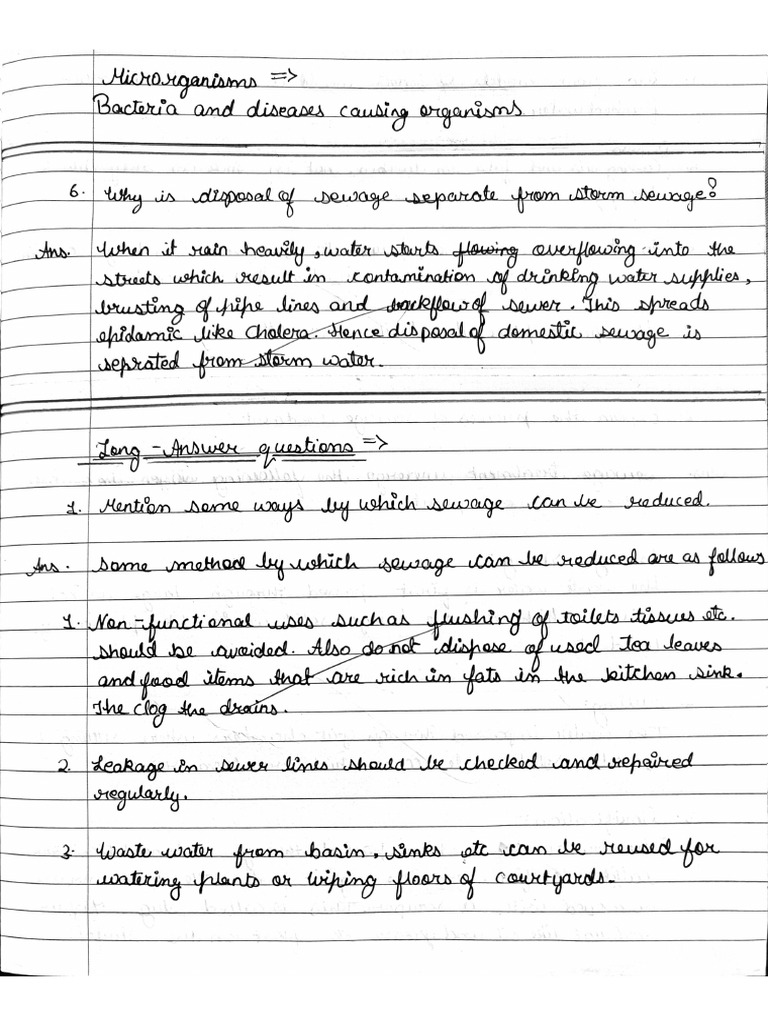 Microrganisms =>
Bacteria and diseases causing organisms
6. Why is disposal of sewage separate from storm sewage?
Ans. When it rain heavily, water starts flowing overflowing into the
streets which result in contamination of drinking water supplies,
brusting of pipe lines and backflow of sewer. This spreads
epidamic like Cholera. Hence disposal of domestic sewage is
seprated from storm water.
Long-Answer questions =>
1. Mention some ways by which sewage can be reduced.
Ans. Some method by which sewage can be reduced are as follows
1. Non-functional uses such as flushing of toilets tissues etc.
should be avoided. Also do not dispose of used tea leaves
and food items that are rich in fats in the kitchen sink.
The clog the drains.
2. Leakage in sewer lines should be checked and repaired
regularly.
3. Waste water from basin, sinks etc can be reused for
watering plants or wiping floors of courtyards.